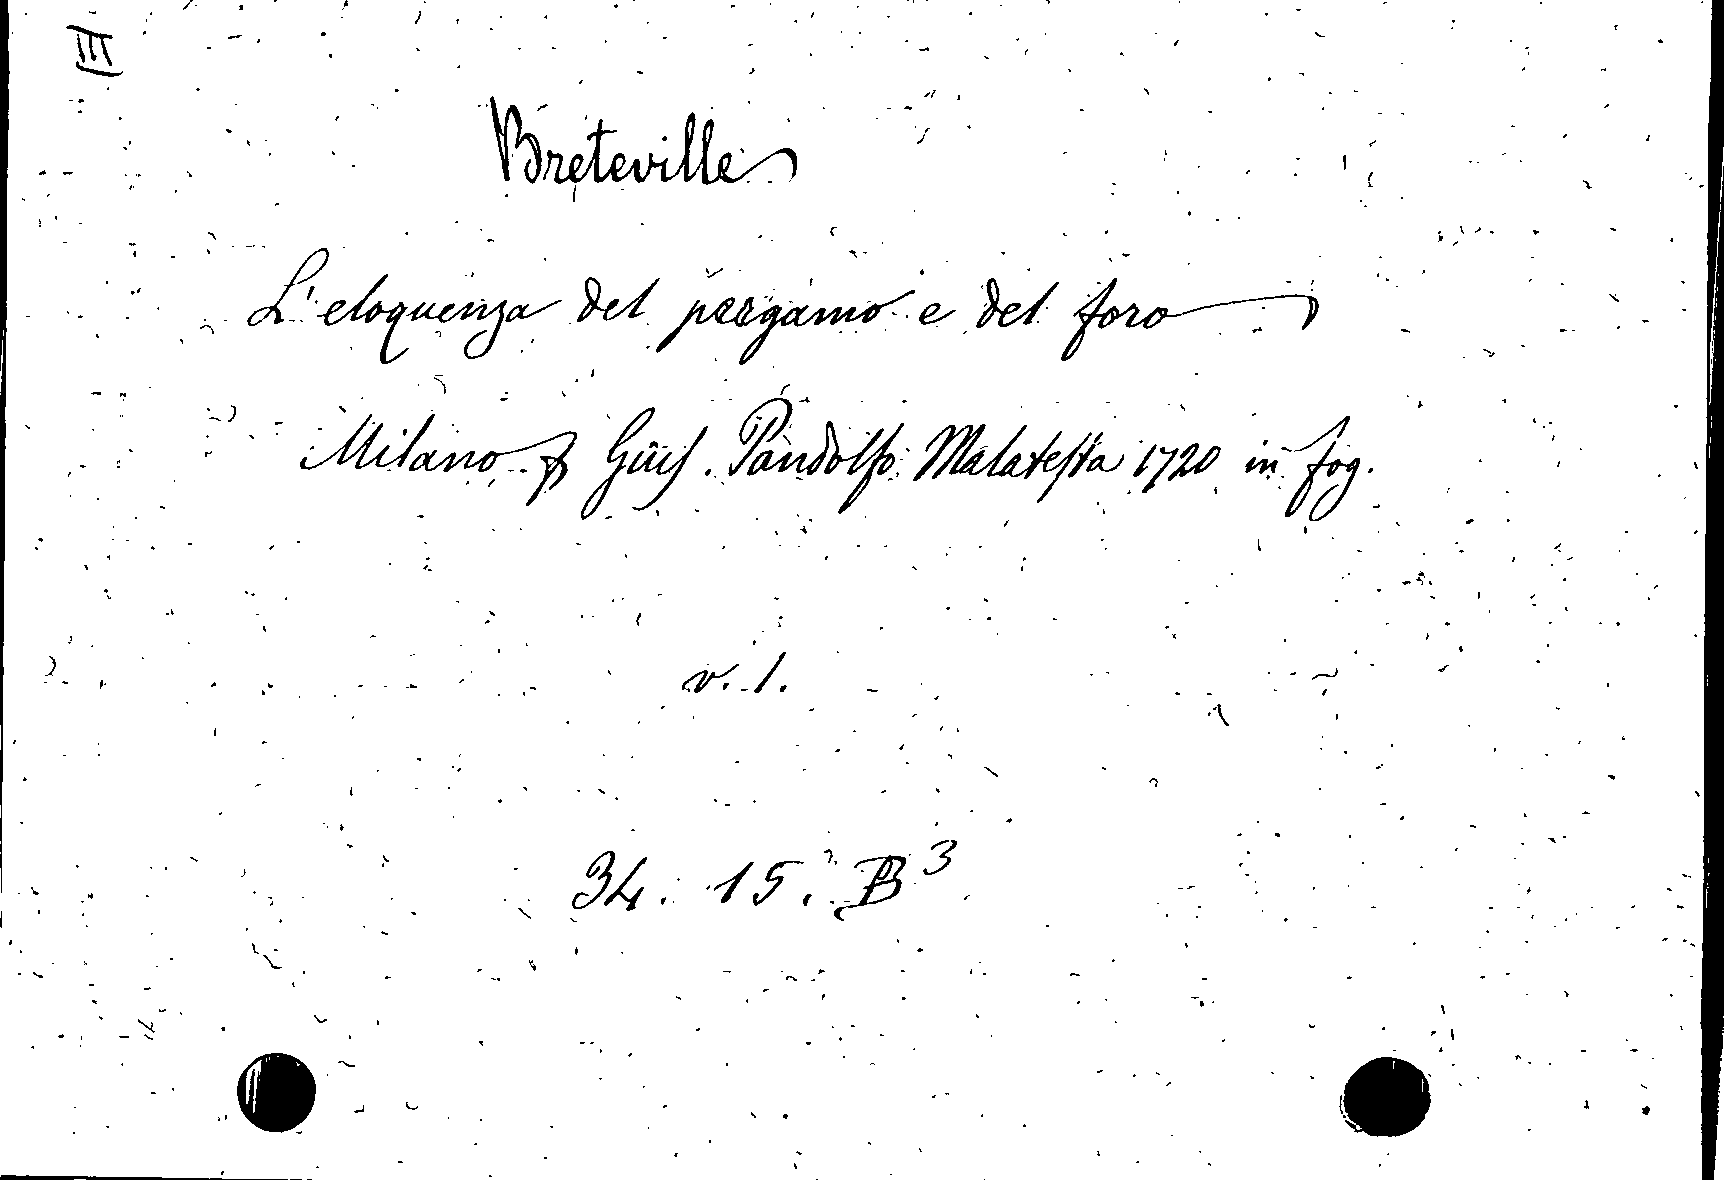 III
Breteville
L'eloquenza del pergamo e del foro
Milano p Gius. Pandolfo Malatesta 1720 in fog.
v. 1.
34. 15. B 3